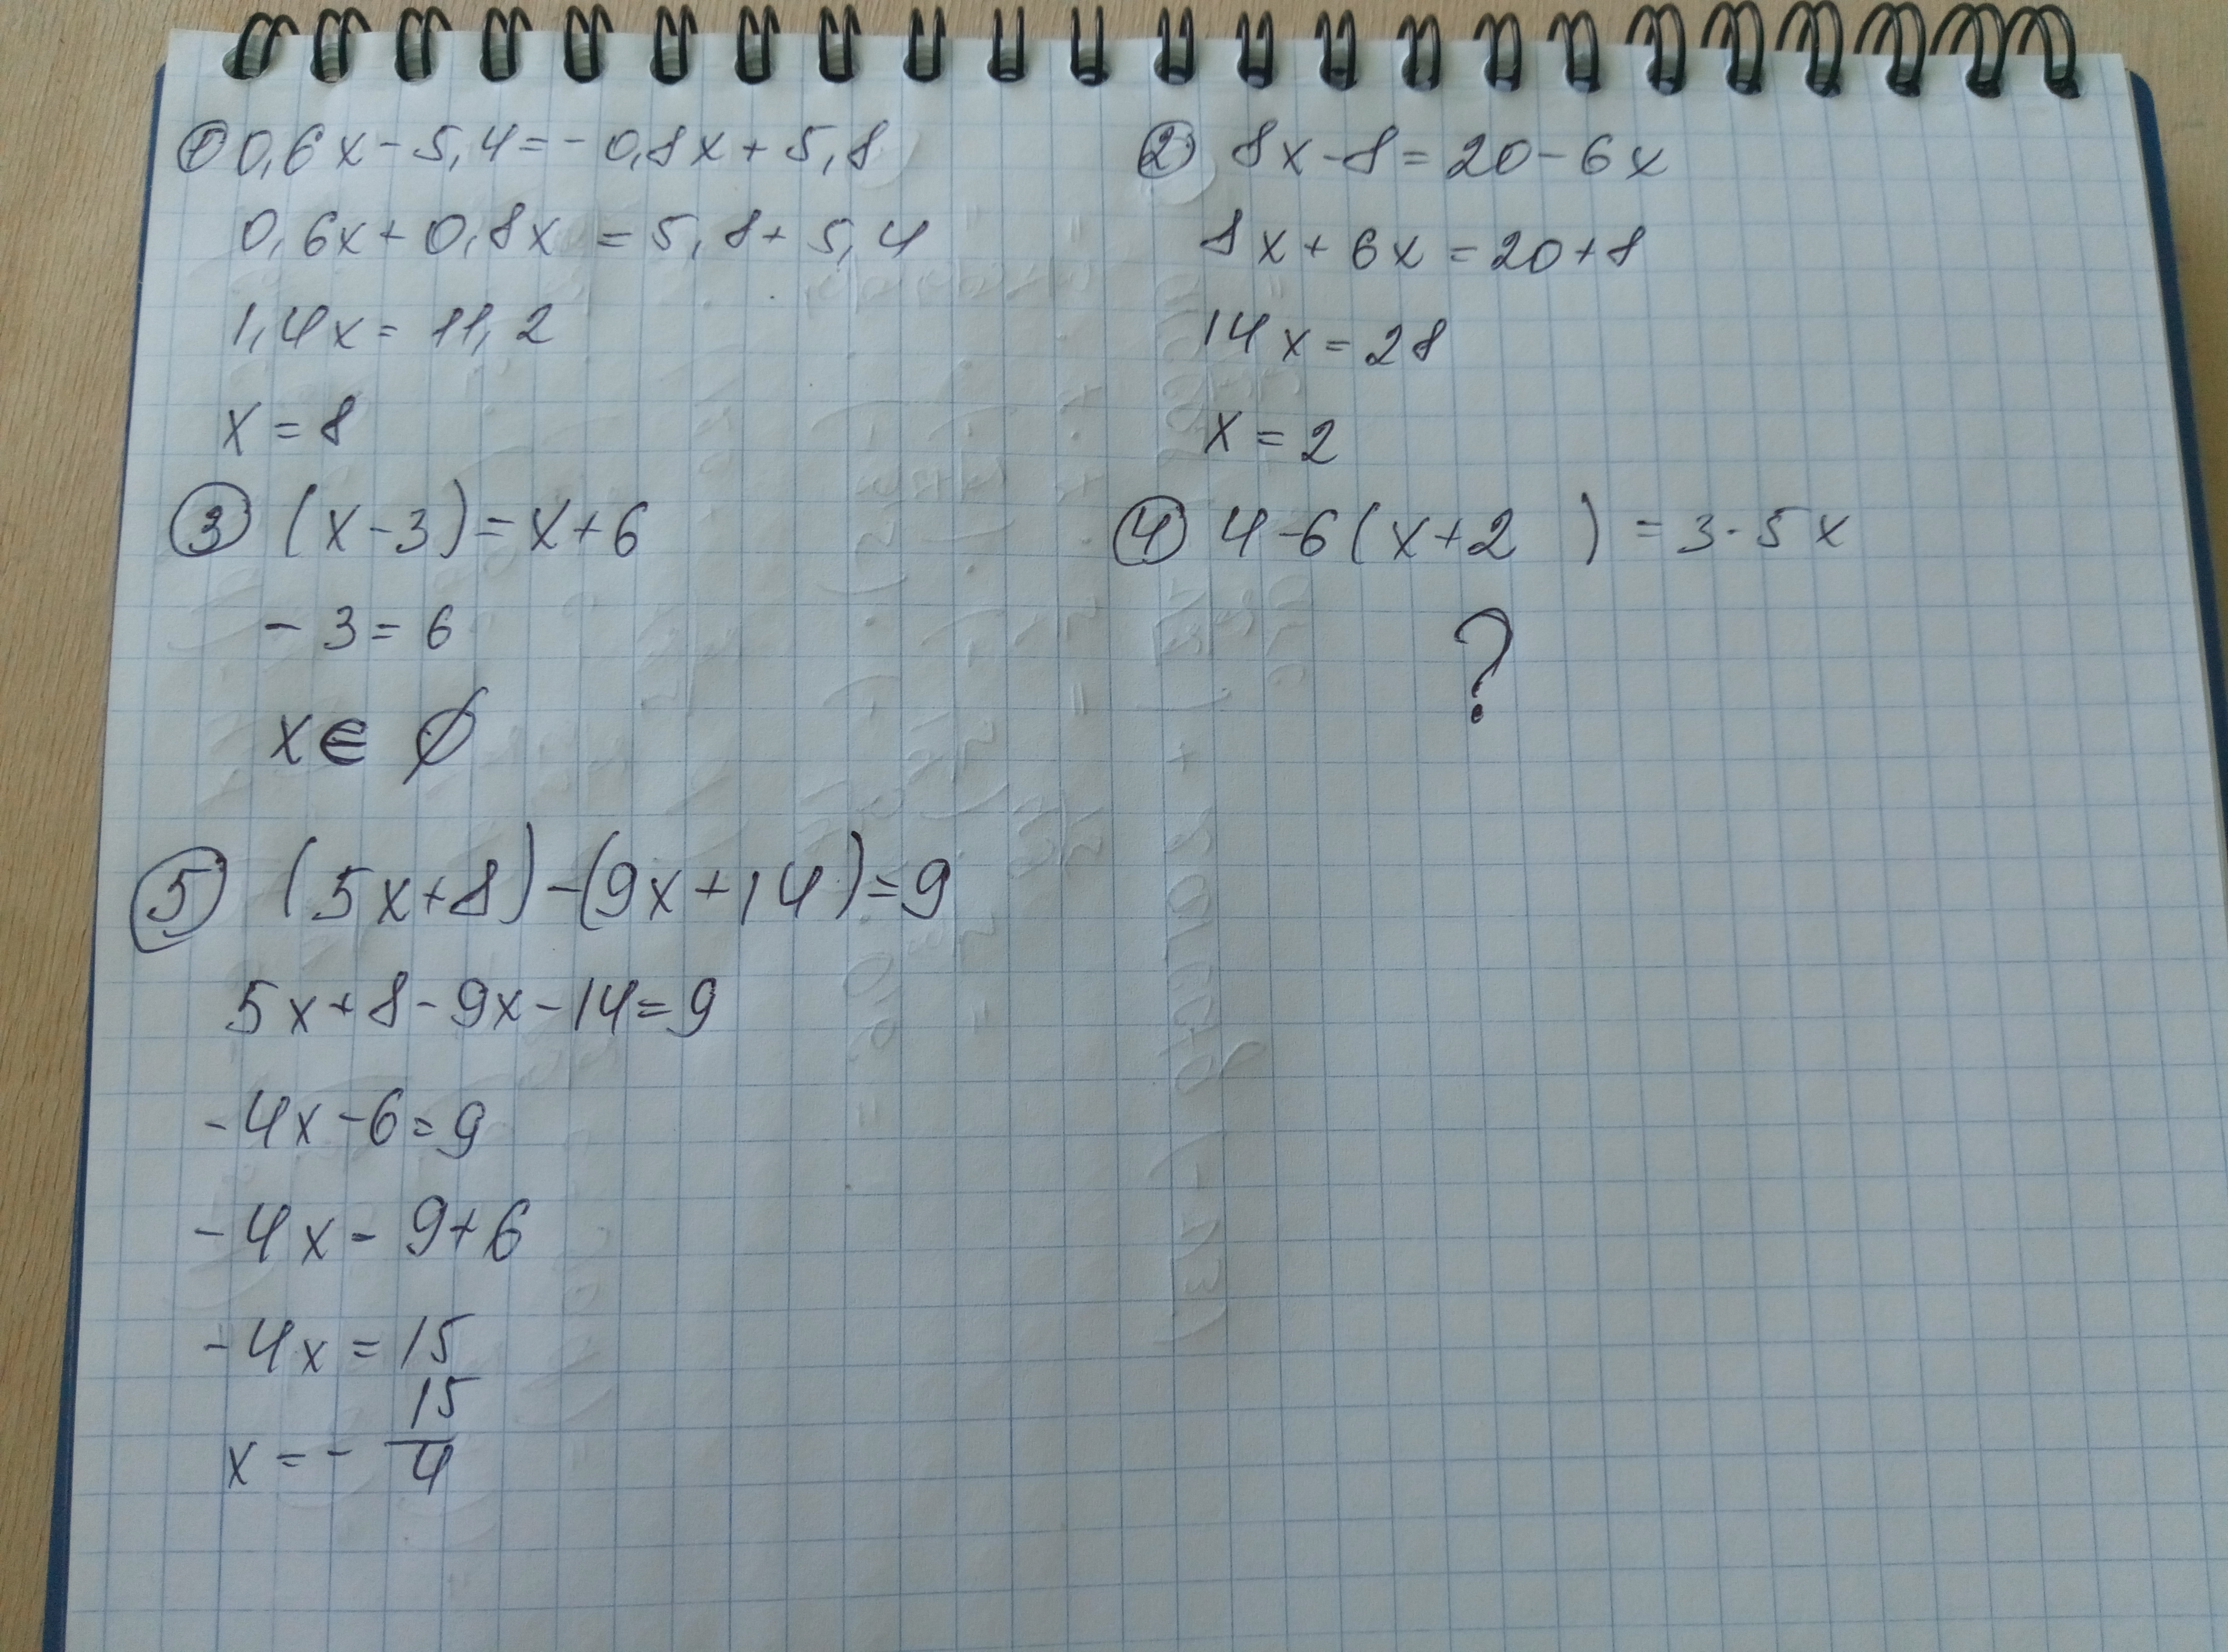 ① 0,6x - 5,4 = - 0,8x + 5,8
0,6x + 0,8x = 5,8 + 5,4
1,4x = 11,2
x = 8
② 8x - 8 = 20 - 6x
8x + 6x = 20 + 8
14x = 28
x = 2
③ (x - 3) = x + 6
- 3 = 6
x ∈ ∅
④ 4 - 6(x + 2 ) = 3 - 5x
?
⑤ (5x + 8) - (9x + 14) = 9
5x + 8 - 9x - 14 = 9
- 4x - 6 = 9
- 4x - 9 + 6
- 4x = 15
x = - 15/4